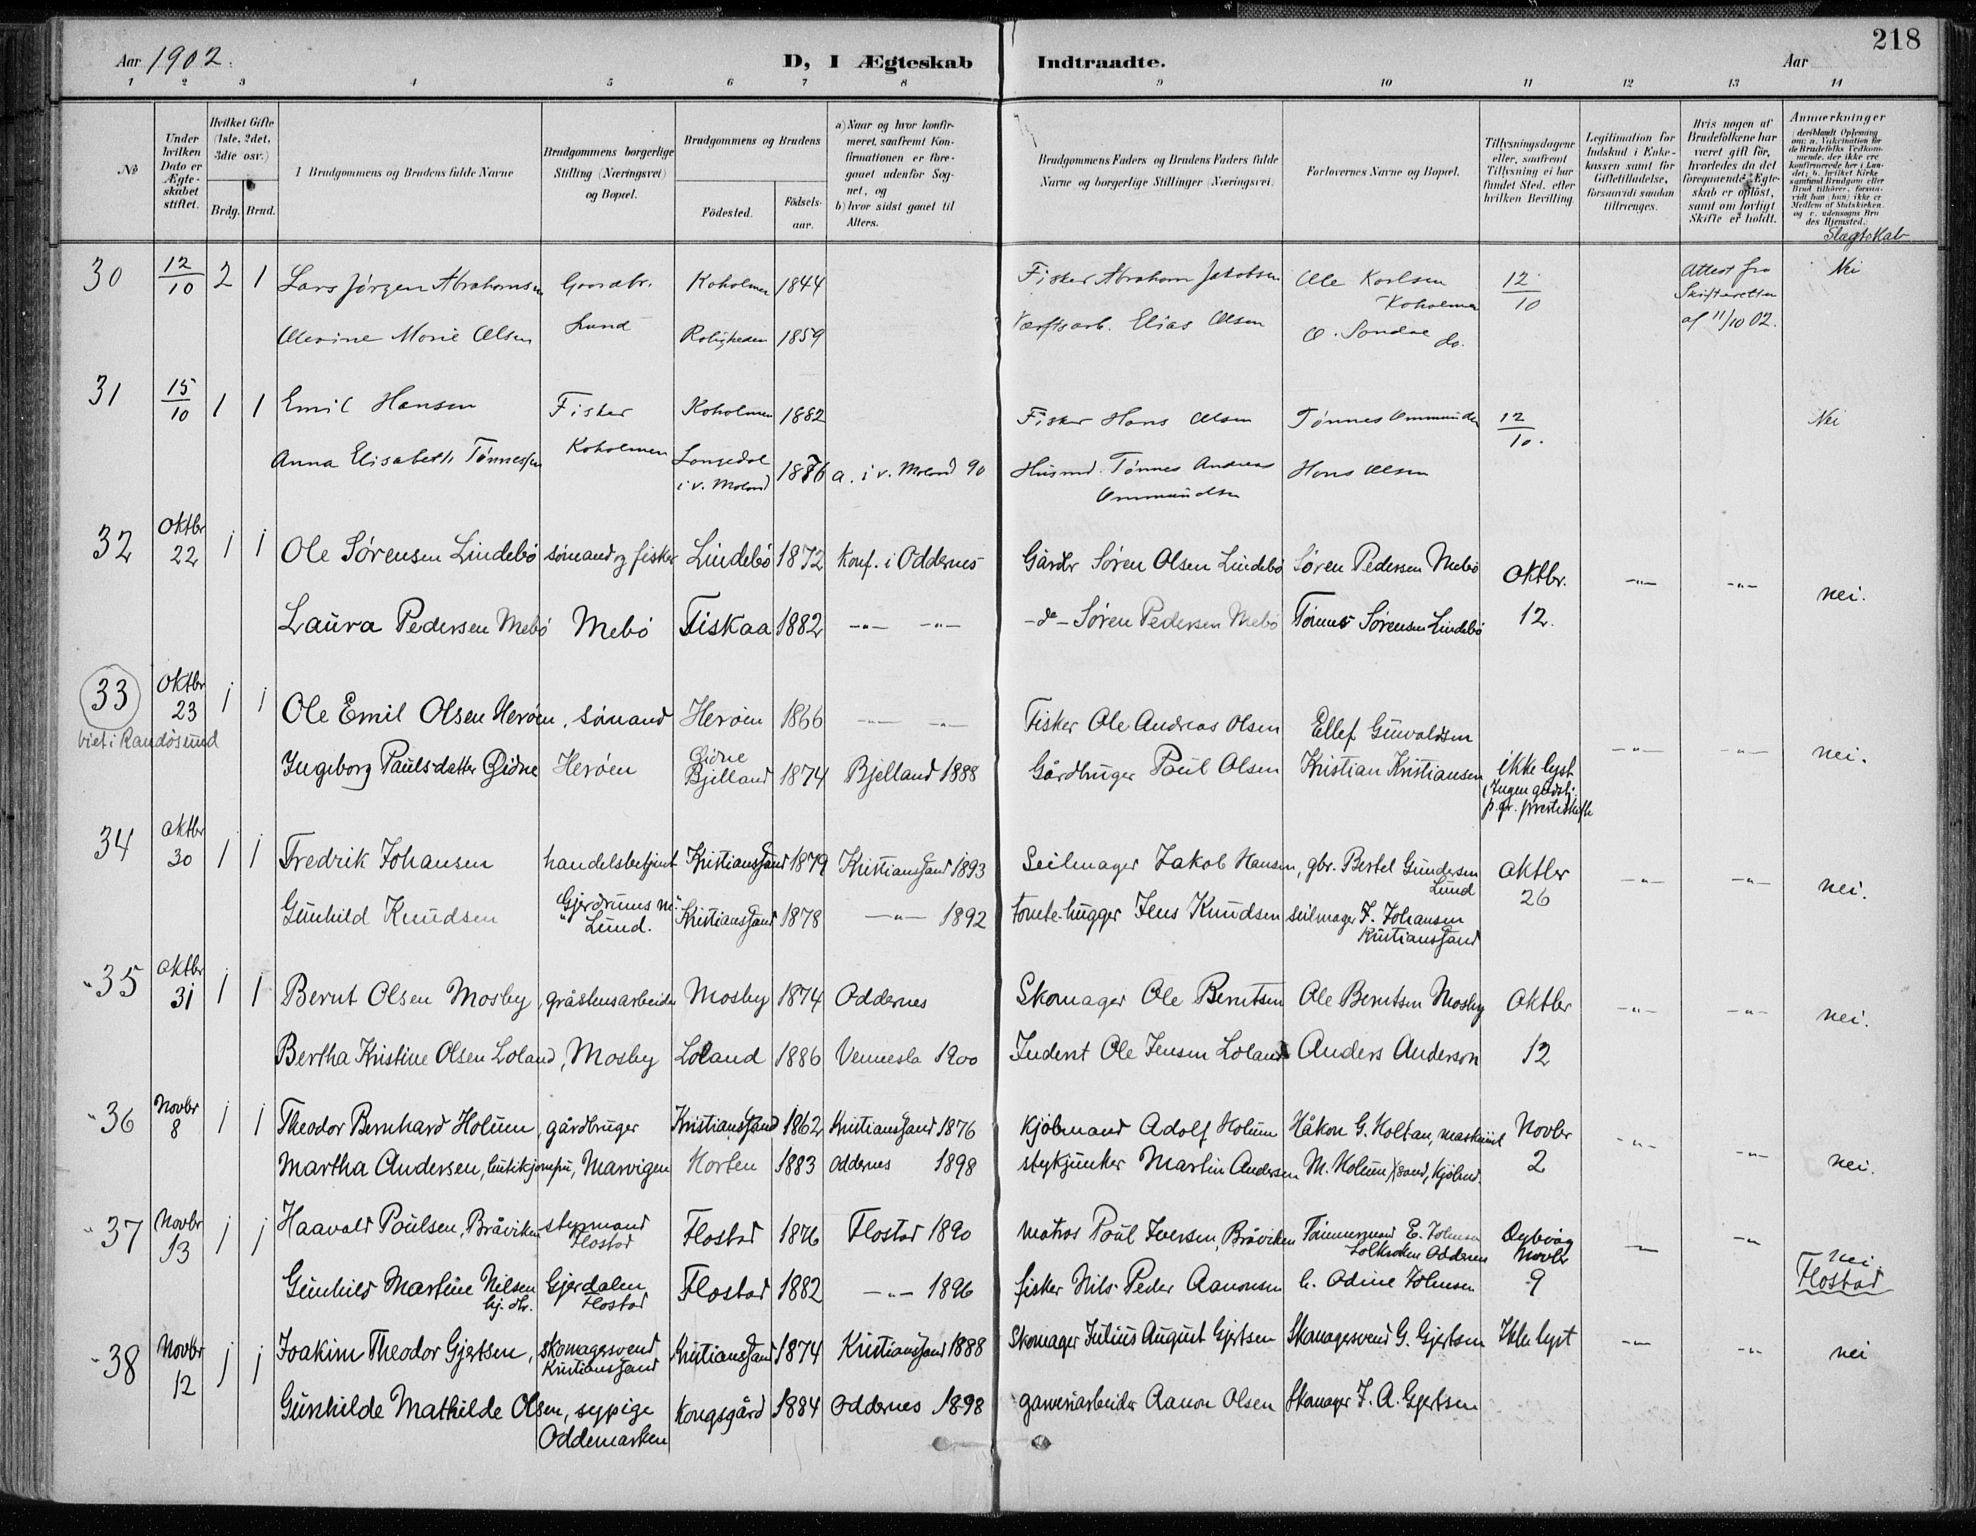 218
Aar 1902.
D, I Ægteskab Indtraadte.
Aar
1 2 3 4 5 6 7 8 9 10 11 12 13 14
No
Under hvilken Dato er Ægteskabet stiftet.
Hvilket Gifte (1ste, 2det, 3die osv.)
Brdg. Brud.
Brudgommens og Brudens fulde Navne
Brudgommens borgerlige Stilling (Næringsvei) og Bopæl.
Brudgommens og Brudens
Födested. Födsels-aar.
a) Naar og hvor konfirmeret, saafremt Konfirmationen er foregaaet udenfor Sognet, og
b) hvor sidst gaaet til Alters.
Brudgommens Faders og Brudens Faders fulde Navne og borgerlige Stillinger (Næringsvei).
Forlovernes Navne og Bopæl.
Tillysningsdagene eller, saafremt Tillysning ei har fundet Sted, efter hvilken Bevilling.
Legitimation for Indskud i Enkekassen samt for Giftetilladelse, forsaavidt saadan tiltrænges.
Hvis nogen af Brudefolkene har været gift før, hvorledes da det foregaaende Ægteskab er opløst, samt om lovligt Skifte er holdt.
Anmærkninger
Slægtskab
30 12/10 2 1 Lars Jørgen Abrahamsen Gaardbr. Koholmen 1844 Fisker Abraham Jakobsen Ole Karlsen Koholmen 12/10 Attest fra Skifteretten af 11/10 02. Nei
Olevine Marie Olsen Lund Roligheden 1859 Værftsarb. Elias Olsen do.
31 15/10 1 1 Emil Hansen Fisker Koholmen 1882 Fisker Hans Olsen Tønnes Ommundsen 12/10. Nei
Anna Elisabeth Tønnessen Koholmen i v. Moland 1876 a. i v. Moland 90 Husmd. Tønnes Andreas Ommundsen Hans Olsen
32 Oktbr 22 1 1 Ole Sørensen Lindebö sömand og fisker Lindebö 1872 Konf. i Oddernes Gårdbr Sören Olsen Lindebö Sören Pedersen Mebö Oktbr. -"- -"- nei.
Laura Pedersen Mebö Mebö Fiskaa 1882 -"- -"- -do- Sören Pedersen Mebö Tönnes Sörensen Lindebö 12.
33 Oktbr 23 1 1 Ole Emil Olsen Heröen, sömand Heröen 1866 -"- -"- Fisker Ole Andreas Olsen Ellef Gunvaldsen -"- -"- nei.
viet i Randösund
Ingeborg Paulsdatter Öidne Heröen Öidne Bjelland 1874 Bjelland 1888 Gårdbruger Paul Olsen Kristian Kristiansen ikke lyst
34 Oktbr 30 1 1 Fredrik Johansen handelsbetjent Kristianssand 1879 Kristianssand 1893 Seilmager Jakob Hansen, gbr. Bertel Gundersen Lund Oktber 26 -"- -"- nei.
Gunhild Knudsen Gjerdrums m. Lund. Kristianssand 1878 -"- 1892 tomte-hugger Jens Knudsen seilmager J. Johansen Kristianssand
35 Oktbr 31 1 1 Bernt Olsen Mosby, gråstensarbeider Mosby 1874 Oddernes Skomager Ole Berntsen Ole Berntsen Mosby Oktbr -"- -"- nei.
Bertha Kristine Olsen Loland, Mosby Loland 1886 Vennesla 1900 Inderst Ole Jensen Loland Anders Anderson 12
36 Novbr 8 1 1 Theodor Bernhard Holum, gårdbruger Kristianssand 1862 Kristianssand 1876 Kjöbmand Adolf Holum Håkon G. Holtan, maskinist Novbr -"- -"- nei.
Martha Andersen, Marvigen Horten 1883 Oddernes 1898 stykjunker Martin Andersen M. Holum, Kr.sand, Kjöbmd. 2
37 Novbr 13 1 1 Haavald Poulsen, Bråviken styrmand Flostad 1876 Flostad 1890 matros Poul Iversen, Bråviken Tömmermand E. Johnsen Oddernes Dybvåg Novbr -"- -"- nei.
Gunhild Martine Nilsen hj. dtr. Gjerdalen Flostad Flostad 1882 -"- 1896 fisker Nils Peder Aanonsen Odine Johnsen 9 Flostad
38 Novbr 12 1 1 Joakim Theodor Gjertsen, skomagersvend Kristianssand Kristianssand 1874 Kristianssand 1888 Skomager Julius August Gjertsen Skomagersvend G. Gjertsen Ikke lyst -"- -"- nei
Gunhilde Mathilde Olsen, sypige Oddemarken Kongsgård 1884 Oddernes 1898 garveriarbeider Aanon Olsen Skomager J. A. Gjertsen